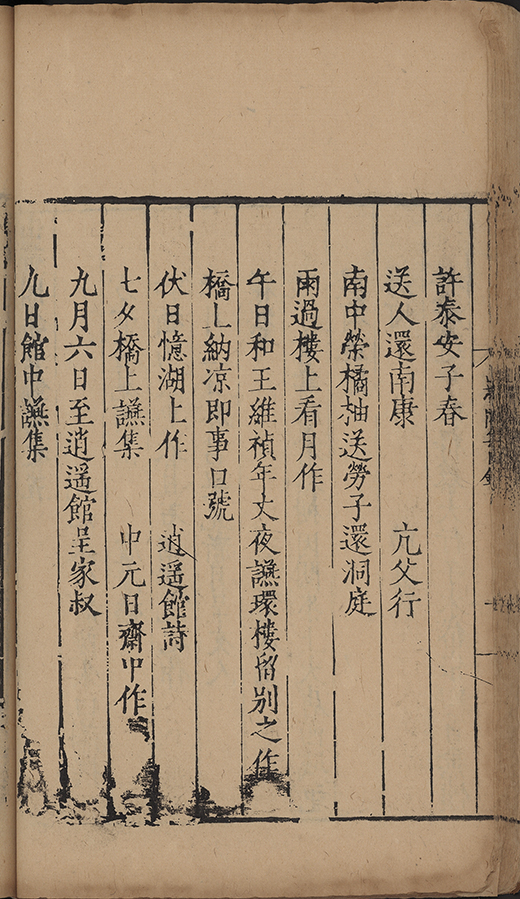 許泰安子春
送人還南康　亢父行
南中榮橘柚送勞子還洞庭
雨過樓上看月作
午日和王維禎年丈夜讌環樓留別之作
橋上納凉即事口號
伏日憶湖上作　逍遥館詩
七夕橋上讌集　中元日齋中作
九月六日至逍遥館呈家叔
九日館中讌集